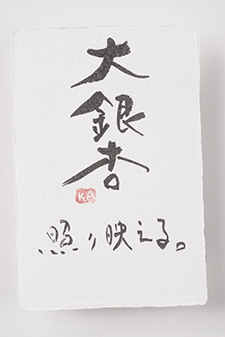 大銀杏
照り映える。